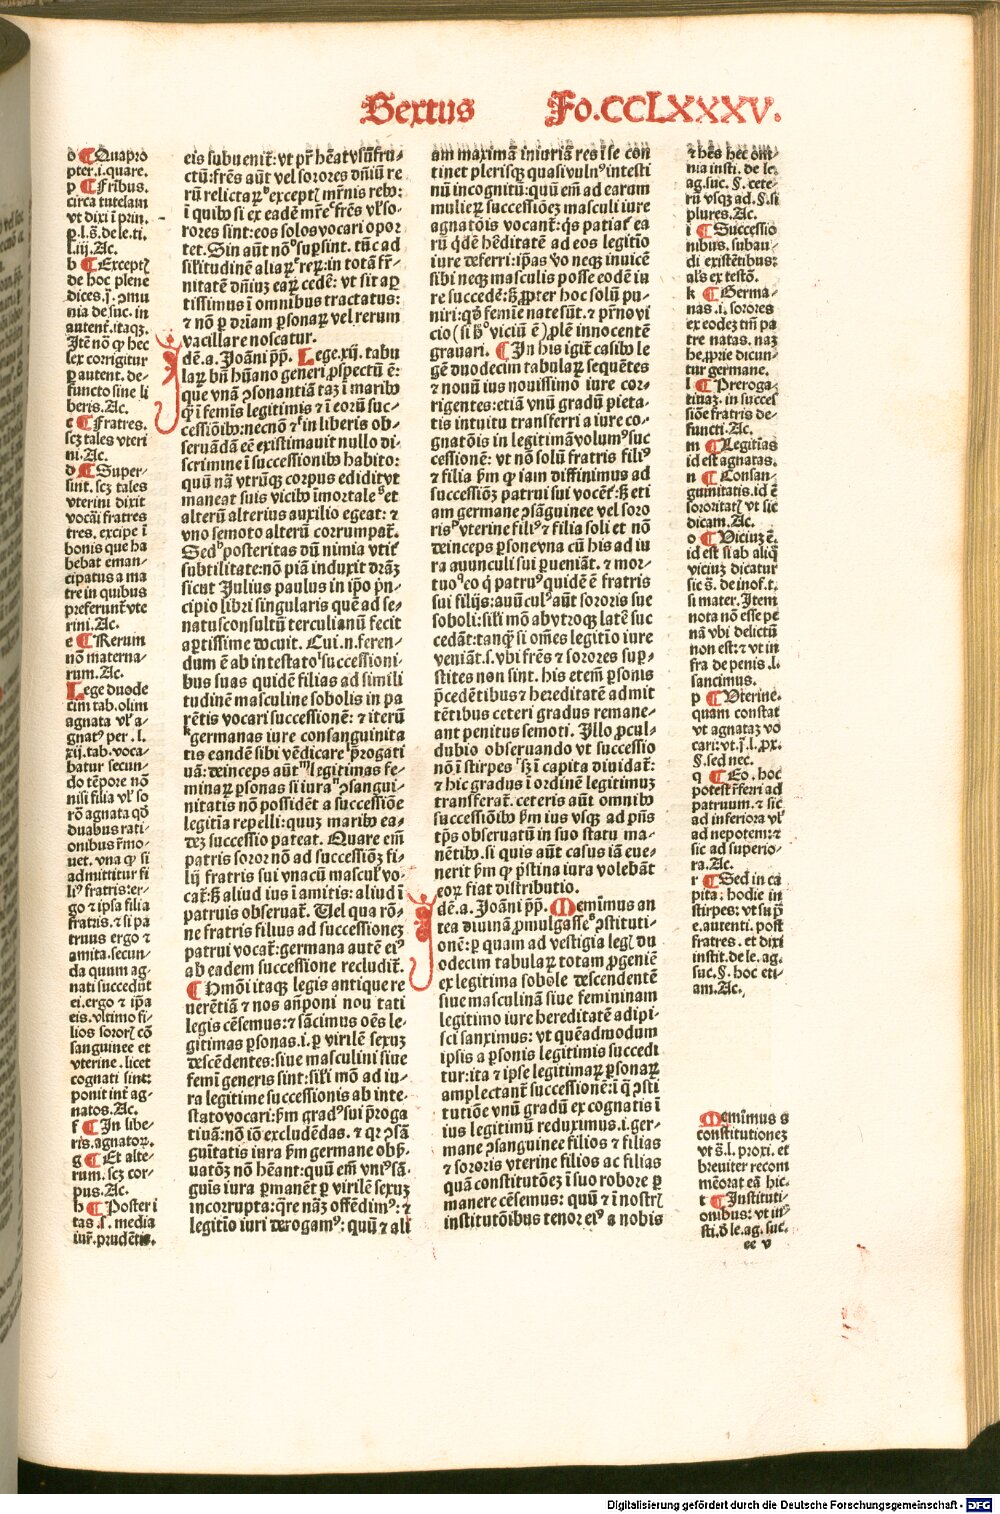 Sextus Fo.CCLXXXV.
o ¶ Quapro
pter.i.quare.
p ¶ Fribus.
circa tutelam
vt dixi ī prin.
p.l.s̄.de le.ti.
l.iij.Ac.
b ¶ Exceptꝭ
de hoc plene
dices.ī.ꝯmu
nia de suc. in
autent̄.itaqꝫ.
Itē nō ꝙ hec
lex corrigitur
ꝑ autent. de-
functo sine li
beris.Ac.
c ¶ Fratres.
scꝫ tales vteri
ni.Ac.
d ¶ Super-
sint. scꝫ tales
vterini dixit
vocāi fratres
tres. excipe ī
bonis que ha
bebat eman-
cipatus a ma
tre in quibus
preferunt̄ vte
rini.Ac.
e ¶ Rerum
nō materna-
rum.Ac.
Lege duode
cim tab.olim
agnata vl̓ a-
gnatꝰ per .l.
xij.tab.voca-
batur secun-
do tēpore nō
nisi filia vl̓ so
rō agnata qđ
duabus rati-
onibus r̄mo-
uet. vna ꝙ si
admittitur fi
liꝰ fratris:er-
go ⁊ ipsa filia
fratris.⁊ si pa
truus ergo ⁊
amita.secun-
da quum ag-
nati succedūt
ei.ergo ⁊ ip̄a
eis.vltimo fi-
lios sororꝭ cō
sanguinee et
vterine.licet
cognati sint:
ponit int̄ ag-
natos.Ac.
f ¶ In libe-
ris.agnatorꝝ.
g ¶ Et alte-
rum. scꝫ cor-
pus.Ac.
h ¶ Posteri
tas .s. media
iur̄.prudētis.
eis subuenit̄:vt pr̄ hēat vsūfru-
ctū:frēs aūt vel sorores dn̄iū re
rū relictaꝝ exceptꝭ mr̄nis rebꝰ:
ī quibꝰ si ex eadē mr̄e frēs vl̓ so-
rores sint:eos solos vocari opor
tet. Sin aūt nō supsint. tūc ad
sil̓itudinē aliaꝝ reꝝ:in totā fr̄-
nitatē dn̄iuꝫ eaꝝ cedē: vt sit ap
tissimus ī omnibus tractatus:
⁊ nō ꝑ dr̄iam ꝑsonaꝝ vel rerum
vacillare noscatur.
Idē.a. Joāni p̄p̄. Lege.xij. tabu
laꝝ bn̄ hūano generi ꝓspectū ē:
que vnā ꝯsonantiā taꝫ ī maribꝰ
ꝙ̄ ī femīs legitimis ⁊ ī eorū suc-
cessiōibꝰ:necnō ⁊ in liberis ob-
seruādā eē existimauit nullo di-
scrimine ī successionibꝰ habito:
quū nā vtrūqꝫ corpus edidit vt
maneat suis vicibꝰ īmortale et
alterū alterius auxilio egeat: ⁊
vno semoto alterū corrumpat̄.
Sed posteritas dū nimia vtit̄
subtilitate:nō piā induxit dr̄āꝫ
sicut Julius paulus in ip̄o pn̄-
cipio libri singularis quē ad se-
natusconsultū terculianū fecit
aꝑtissime docuit. Cui.n.feren-
dum ē ab intestato successioni-
bus suas quidē filias ad simili
tudinē masculine sobolis in pa
rētis vocari successionē: ⁊ iterū
germanas iure consanguinita
tis eandē sibi vēdicare p̄rogati
uā: deinceps aūt legitimas fe-
minaꝝ ꝑsonas si iura ꝯsangui-
nitatis nō possidēt a successiōe
legitīa repelli: quuꝫ maribꝰ ea-
deꝫ successio pateat. Quare em̄
patris soror nō ad successiōꝫ fi-
lij fratris sui vna cū masculꝭ vo-
cat̄:ꝫ aliud ius ī amitis: aliud ī
patruis obseruat̄. Uel qua rō-
ne fratris filius ad successionez
patrui vocat̄:germana autē eiꝰ
ab eadem successione recludit̄.
¶ Hmōi itaqꝫ legis antique re
uerētiā ⁊ nos an̄poni nouitati
legis cēsemus:⁊ sācimus oēs le-
gitimas ꝑsonas.i.ꝑ virilē sexuꝫ
descēdentes:siue masculini siue
femī generis sint:sil̓i mō ad iu-
ra legitime successionis ab inte-
stato vocari:ꝫm gradꝰ sui p̄roga
tiuā:nō iō excludēdas. ⁊ qꝛ ꝯsā
guitatis iura ꝫm germane obẜ-
uatōꝫ nō hēant:quū em̄ vniꝰ sā-
guis iura ꝑmanēt ꝑ virilē sexuꝫ
incorrupta:qr̄e nāꝫ offēdimꝰ: ⁊
legitīo iuri derogamꝰ: quū ⁊ ali
am maximā iniuriā res ise con
tinet plerisqꝫ quasi vulnꝰ intesti
nū incognitū:quū em̄ ad earum
mulieꝝ successiōeꝫ masculi iure
agnatōis vocant̄:q̄s patiat̄ ea
rū q̄dē hēditatē ad eos legitīo
iure deferri:ip̄as ꝟo neqꝫ inuicē
sibi neqꝫ masculis posse eodē iu
re succedē:ꝫ ꝓpter hoc solū pu-
niri:qđ femīe nate sūt. ⁊ pr̄no vi
cio (si ꝫ viciū ē) ꝓlē innocentē
grauari. ¶ In his igit̄ casibꝰ le
gē duodecim tabulaꝝ sequētes
⁊ nouū ius nouissimo iure cor-
rigentes:etiā vnū gradū pieta-
tis intuitu transferri a iure co-
gnatōis in legitimā volumꝰ suc
cessionē: vt nō solū fratris filiꝰ
⁊ filia ꝫm ꝙ iam diffinimus ad
successiōꝫ patrui sui vocēt̄:ꝫ eti
am germane ꝯsāguinee vel soro
risꝰ vterine filiꝰ ⁊ filia soli et nō
deinceps ꝑsone vna cū his ad iu
ra auunculi sui ꝑueniāt. ⁊ mor-
tuo eo q̓ patruꝰ quidē ē fratris
sui filijs: auūculꝰ aūt sororis sue
soboli: sil̓i mō ab vtroqꝫ latē suc
cedāt:tanqꝫ si om̄es legitīo iure
veniāt.s.vbi frēs ⁊ sorores suꝑ-
stites non sint. his etem̄ ꝑsonis
p̄cedētibus ⁊ hereditatē admit
tētibus ceteri gradus remane-
ant penitus semoti. Illo ꝓcul-
dubio obseruando vt successio
nō ī stirpes ꝫ ī capita diuidat̄:
⁊ hic gradus ī ordinē legitimuꝫ
transferat̄. ceteris aūt omnibꝰ
successiōibꝰ ꝫm ius vsqꝫ ad pn̄s
tp̄s obseruatū in suo statu ma-
nētibꝰ.si quis aūt casus iā eue-
nerit ꝫm ꝙ pristina iura volebāt
eoꝝ fiat distributio.
Idē.a. Joāni p̄p̄. Meminimus an
tea diuinā ꝓmulgasse ꝯstituti-
onē:ꝑ quam ad vestigia legꝭ du
odecim tabulaꝝ totam ꝓgeniē
ex legitima sobole descendentē
siue masculinā siue femininam
legitimo iure hereditatē adipi-
sci sanximus: vt quēadmodum
ipsis a ꝑsonis legitimis succedi
tur:ita ⁊ ipse legitimaꝝ ꝑsonaꝝ
amplectant̄ successionē: ī q̄ ꝯsti
tutiōe vnū gradū ex cognatis ī
ius legitimū reduximus. i. ger-
mane ꝯsanguinee filios ⁊ filias
⁊ sororis vterine filios ac filias
quā constitutōeꝫ ī suo robore ꝑ
manere cēsemus: quū ⁊ ī nostrꝭ
institutōibus tenor eiꝰ a nobis
⁊ hēs hec om̄-
nia insti. de le.
ag.suc. §. cete-
rū vsqꝫ ad.§.si
plures. Ac.
i ¶ Successio
nibus. subau-
di existētibus:
al̓s ex testō.
k ¶ Germa-
nas .i. sorores
ex eodeꝫ tm̄ pa
tre natas. naꝫ
he.ꝓprie dicun-
tur germane.
l ¶ Preroga-
tiuaꝫ. in succes
siōe fratris de-
functi. Ac.
m ¶ Legitīas
id est agnatas.
n ¶ Consan-
guinitatis. id ē
sororitatꝭ vt sic
dicam. Ac.
o ¶ Uiciuꝫ ē.
id est si ab aliq̄
viciuꝫ dicatur
sic s̄. de inof.t.
si mater. Item
nota nō esse pe
nā vbi delictū
non est: ⁊ vt in
fra de penis .l.
sancimus.
p ¶ Uterine.
quam constat
vt agnataꝫ vo
cari:vt.ī.l.ꝓx.
§.sed nec.
q ¶ Eo. hoc
potest r̄feri ad
patruum. ⁊ sic
ad inferiora vl̓
ad nepotem:⁊
sic ad superio-
ra. Ac.
r ¶ Sed in ca
pita: hodie in
stirpes: vt sup̄
e.autenti. post
fratres. et dixi
instit. de le. ag-
suc. §. hoc eti-
am. Ac.
Memīmus s
constitutioneꝫ
vt s̄.l. proxi. et
breuiter recom
mēorat eā hic.
t ¶ Instituti-
onibus: vt inꝰ
sti.đ le.ag. suc.
ee v
Digitalisierung gefördert durch die Deutsche Forschungsgemeinschaft - DFG